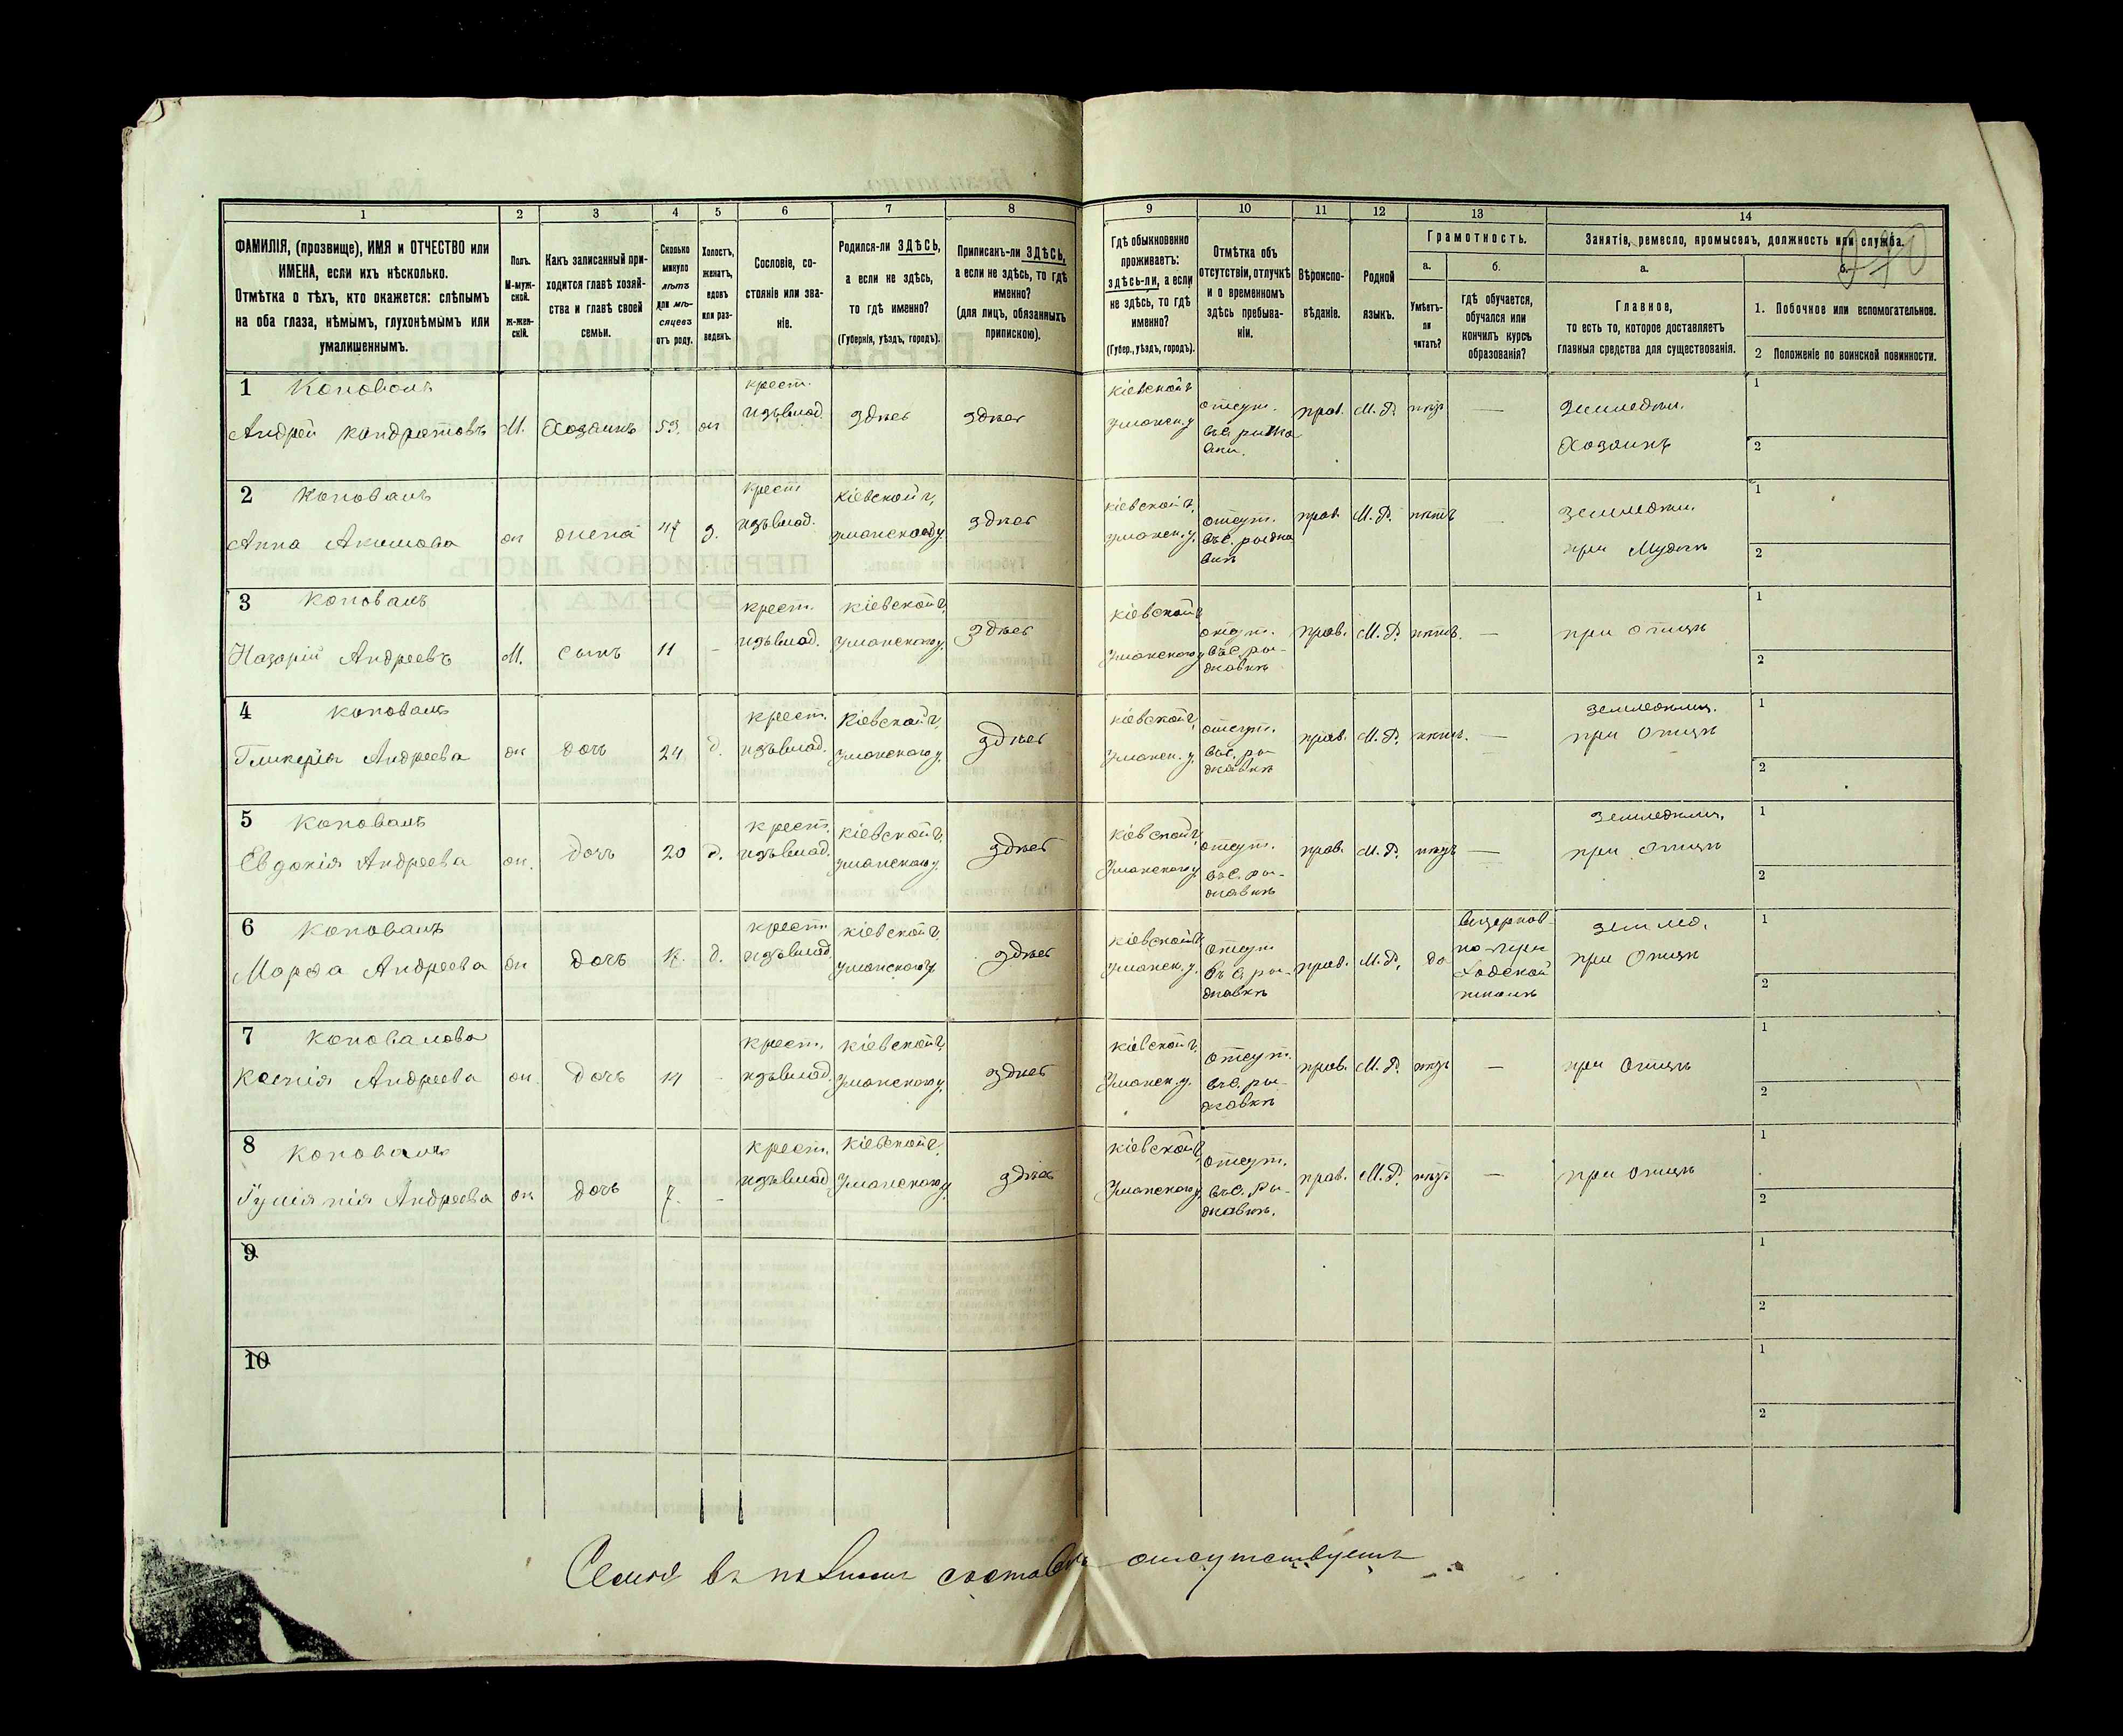 1 2 3 4 5 6 7 8 9 10 11 12 13 14
ФАМИЛІЯ, (прозвище), ИМЯ и ОТЧЕСТВО или
ИМЕНА, если ихъ нѣсколько.
Отмѣтка о тѣхъ, кто окажется: слѣпымъ
на оба глаза, нѣмымъ, глухонѣмымъ или
умалишеннымъ.
Полъ.
М-муж-
ской.
ж-жен-
скій.
Какъ записанный при-
ходится главѣ хозяй-
ства и главѣ своей
семьи.
Сколько
минуло
лѣтъ
или мѣ-
сяцевъ
отъ роду.
Холостъ,
женатъ,
вдовъ
или раз-
веденъ.
Сословіе, со-
стояніе или зва-
ніе.
Родился-ли ЗДѢСЬ,
а если не здѣсь,
то гдѣ именно?
(Губернія, уѣздъ, городъ).
Приписанъ-ли ЗДѢСЬ,
а если не здѣсь, то гдѣ
именно?
(для лицъ, обязанныхъ
припискою).
Гдѣ обыкновенно
проживаетъ:
здѣсь-ли, а если
не здѣсь, то гдѣ
именно?
(Губер., уѣздъ, городъ).
Отмѣтка объ
отсутствіи, отлучкѣ
и о временномъ
здѣсь пребыва-
ніи.
Вѣроиспо-
вѣданіе.
Родной
языкъ.
Грамотность.
а.
Умѣетъ-
ли
читать?
б.
гдѣ обучается,
обучался или
кончилъ курсъ
образованія?
Занятіе, ремесло, промыселъ, должность или служба.
а.
Главное,
то есть то, которое доставляетъ
главныя средства для существованія.
б.
1. Побочное или вспомогательное.
2 Положеніе по воинской повинности.
1 Коновалъ
Андрей Кондратовъ
М.
Хозяинъ
53.
крест.
изъ влад.
здѣсь
здѣсь
Кіевской г.
Уманск. у
отсут.
прав.
М. Р.
нѣтъ
—
Земледѣл.
Хозяинъ
1
2
2 Коновалъ
Анна Акимова
жена
47
з.
крест
изъ влад.
Кіевской г.
Уманского у
здѣсь
Кіевской г.
Уманск. у.
отсут.
прав.
М. Р.
нѣтъ
земледѣл.
при Мужѣ
1
2
3 Коновалъ
Назарій Андреевъ
М.
сынъ
11
-
крест.
изъ влад.
Кіевской г.
Уманского у.
здѣсь
Кіевской г
Уманского у
отсут.
въ с. ры-
жавкѣ
прав.
М. Р.
нѣтъ.
—
при отцѣ
1
2
4 Коновалъ
Гликерія Андреева
дочь
24
д.
крест.
изъ влад.
Кіевской г.
Уманского у.
здѣсь
Кіевской г.
Уманск. у.
отсут.
въ с. ры-
жавкѣ
прав.
М. Р.
нѣтъ.
—
земледѣл.
при отцѣ
1
2
5 Коновалъ
Евдокія Андреева
дочь
20
д.
крест.
изъ влад.
Кіевской г.
Уманского у.
здѣсь
Кіевской г.
Уманского у.
отсут.
въ с. ры-
жавкѣ
прав.
М. Р.
нѣтъ
—
земледѣл.
при отцѣ
1
2
6 Коновалъ
Марфа Андреева
дочь
д.
крест
изъ влад.
Кіевской г.
Уманского у.
здѣсь
Кіевской г.
Уманск. у.
отсут
въ с. ры-
жавкѣ
прав.
М. Р.
да
въ церков-
но-при
ходской
школѣ
землед.
при отцѣ
1
2
7 Коновалова
Ксенія Андреева
дочь
14
-
крест.
изъ влад.
Кіевской г.
Уманского у.
здѣсь
Кіевской г.
Уманск. у.
отсут.
въ с. ры-
жавкѣ
прав.
М. Р.
нѣтъ
—
при отцѣ
1
2
8 Коновалъ
Андреева
дочь
7.
-
крест.
изъ влад
Кіевской г.
Уманского у
здѣсь
Кіевской г
Уманского у.
отсут.
въ с. Ры-
жавкѣ.
прав.
М. Р.
нѣтъ
—
при отцѣ
1
2
9
1
2
10
1
2
Семья въ полномъ составѣ отсутствуетъ